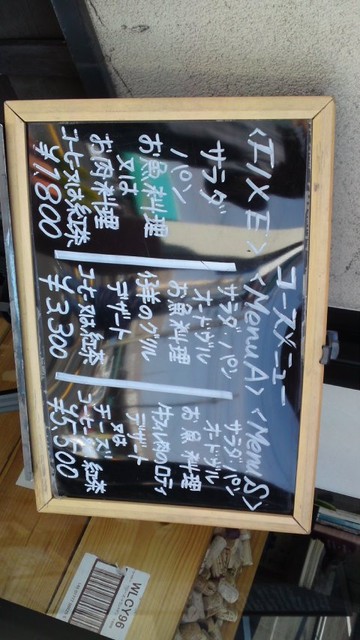 コースメニュー
<イイメE> <MenuA> <MenuS>
サラダ
パン
お魚料理
又は
お肉料理
コーヒ又は紅茶
¥1,800
サラダ・パン
オードヴル
お魚料理
仔羊のグリル
デザート
コーヒ又は紅茶
¥3,300
サラダ・パン
オードヴル
お魚料理
牛ヒレ肉のロティ
デザート
又は
チーズ
コーヒー 紅茶
¥5,500
WLCY96